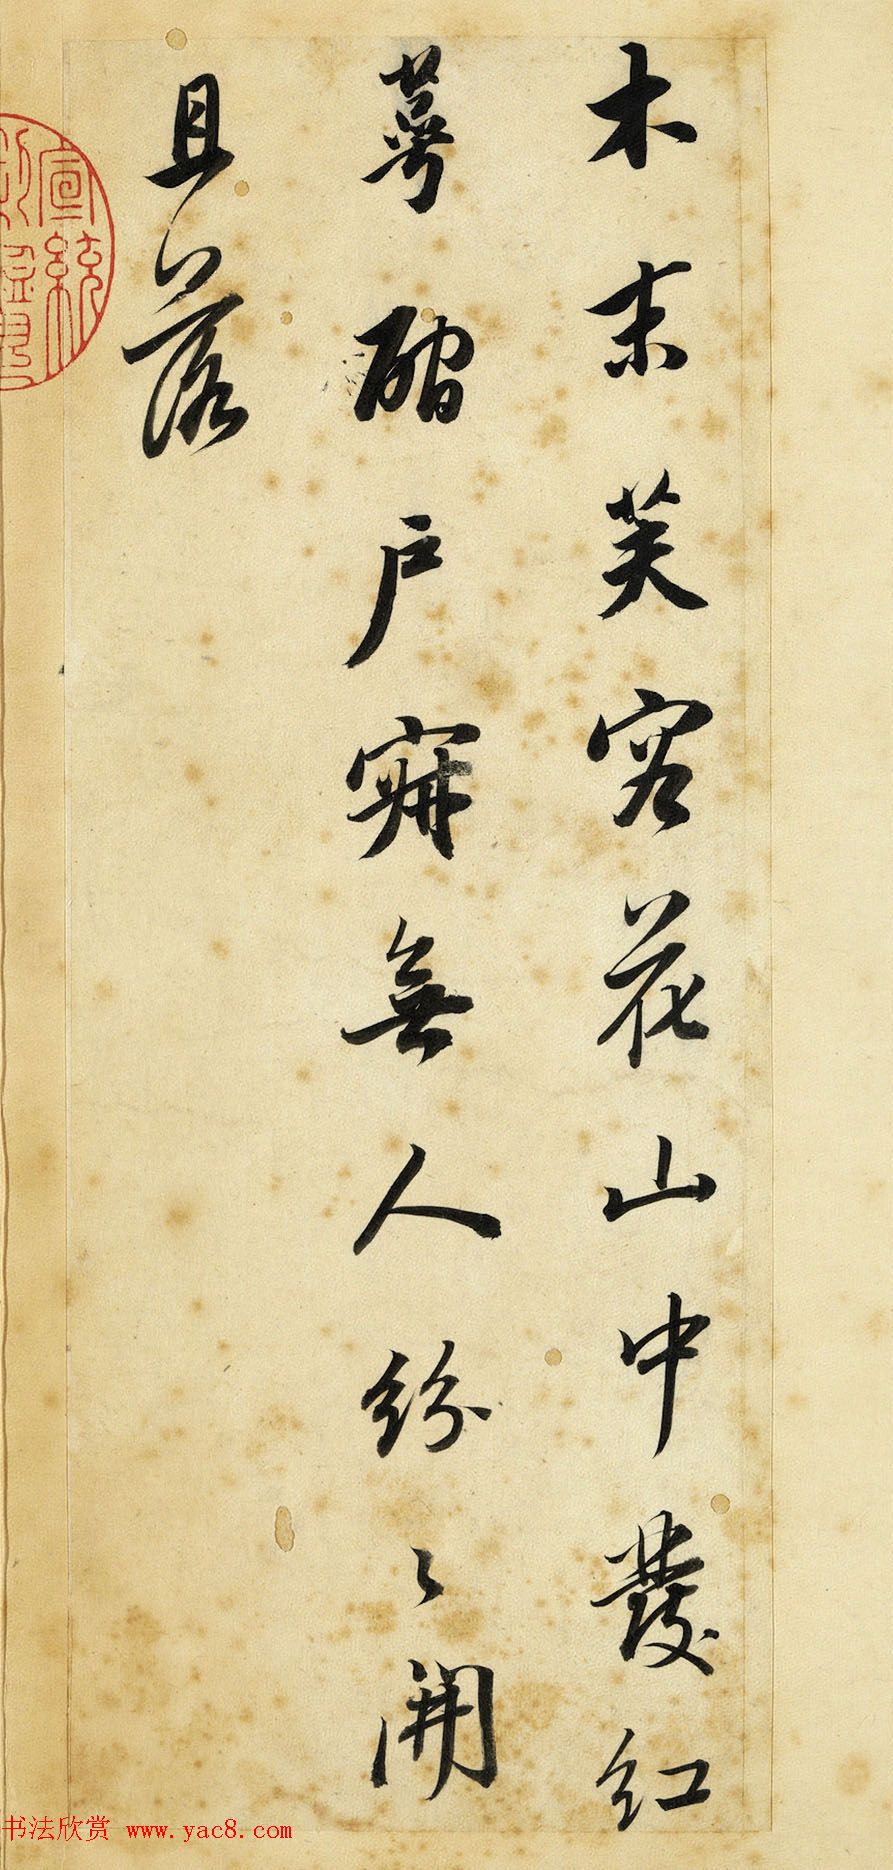 木末芙容花山中發紅
萼磵戶寂無人紛〻開
且落
宣統
书法欣赏 www.yac8.com